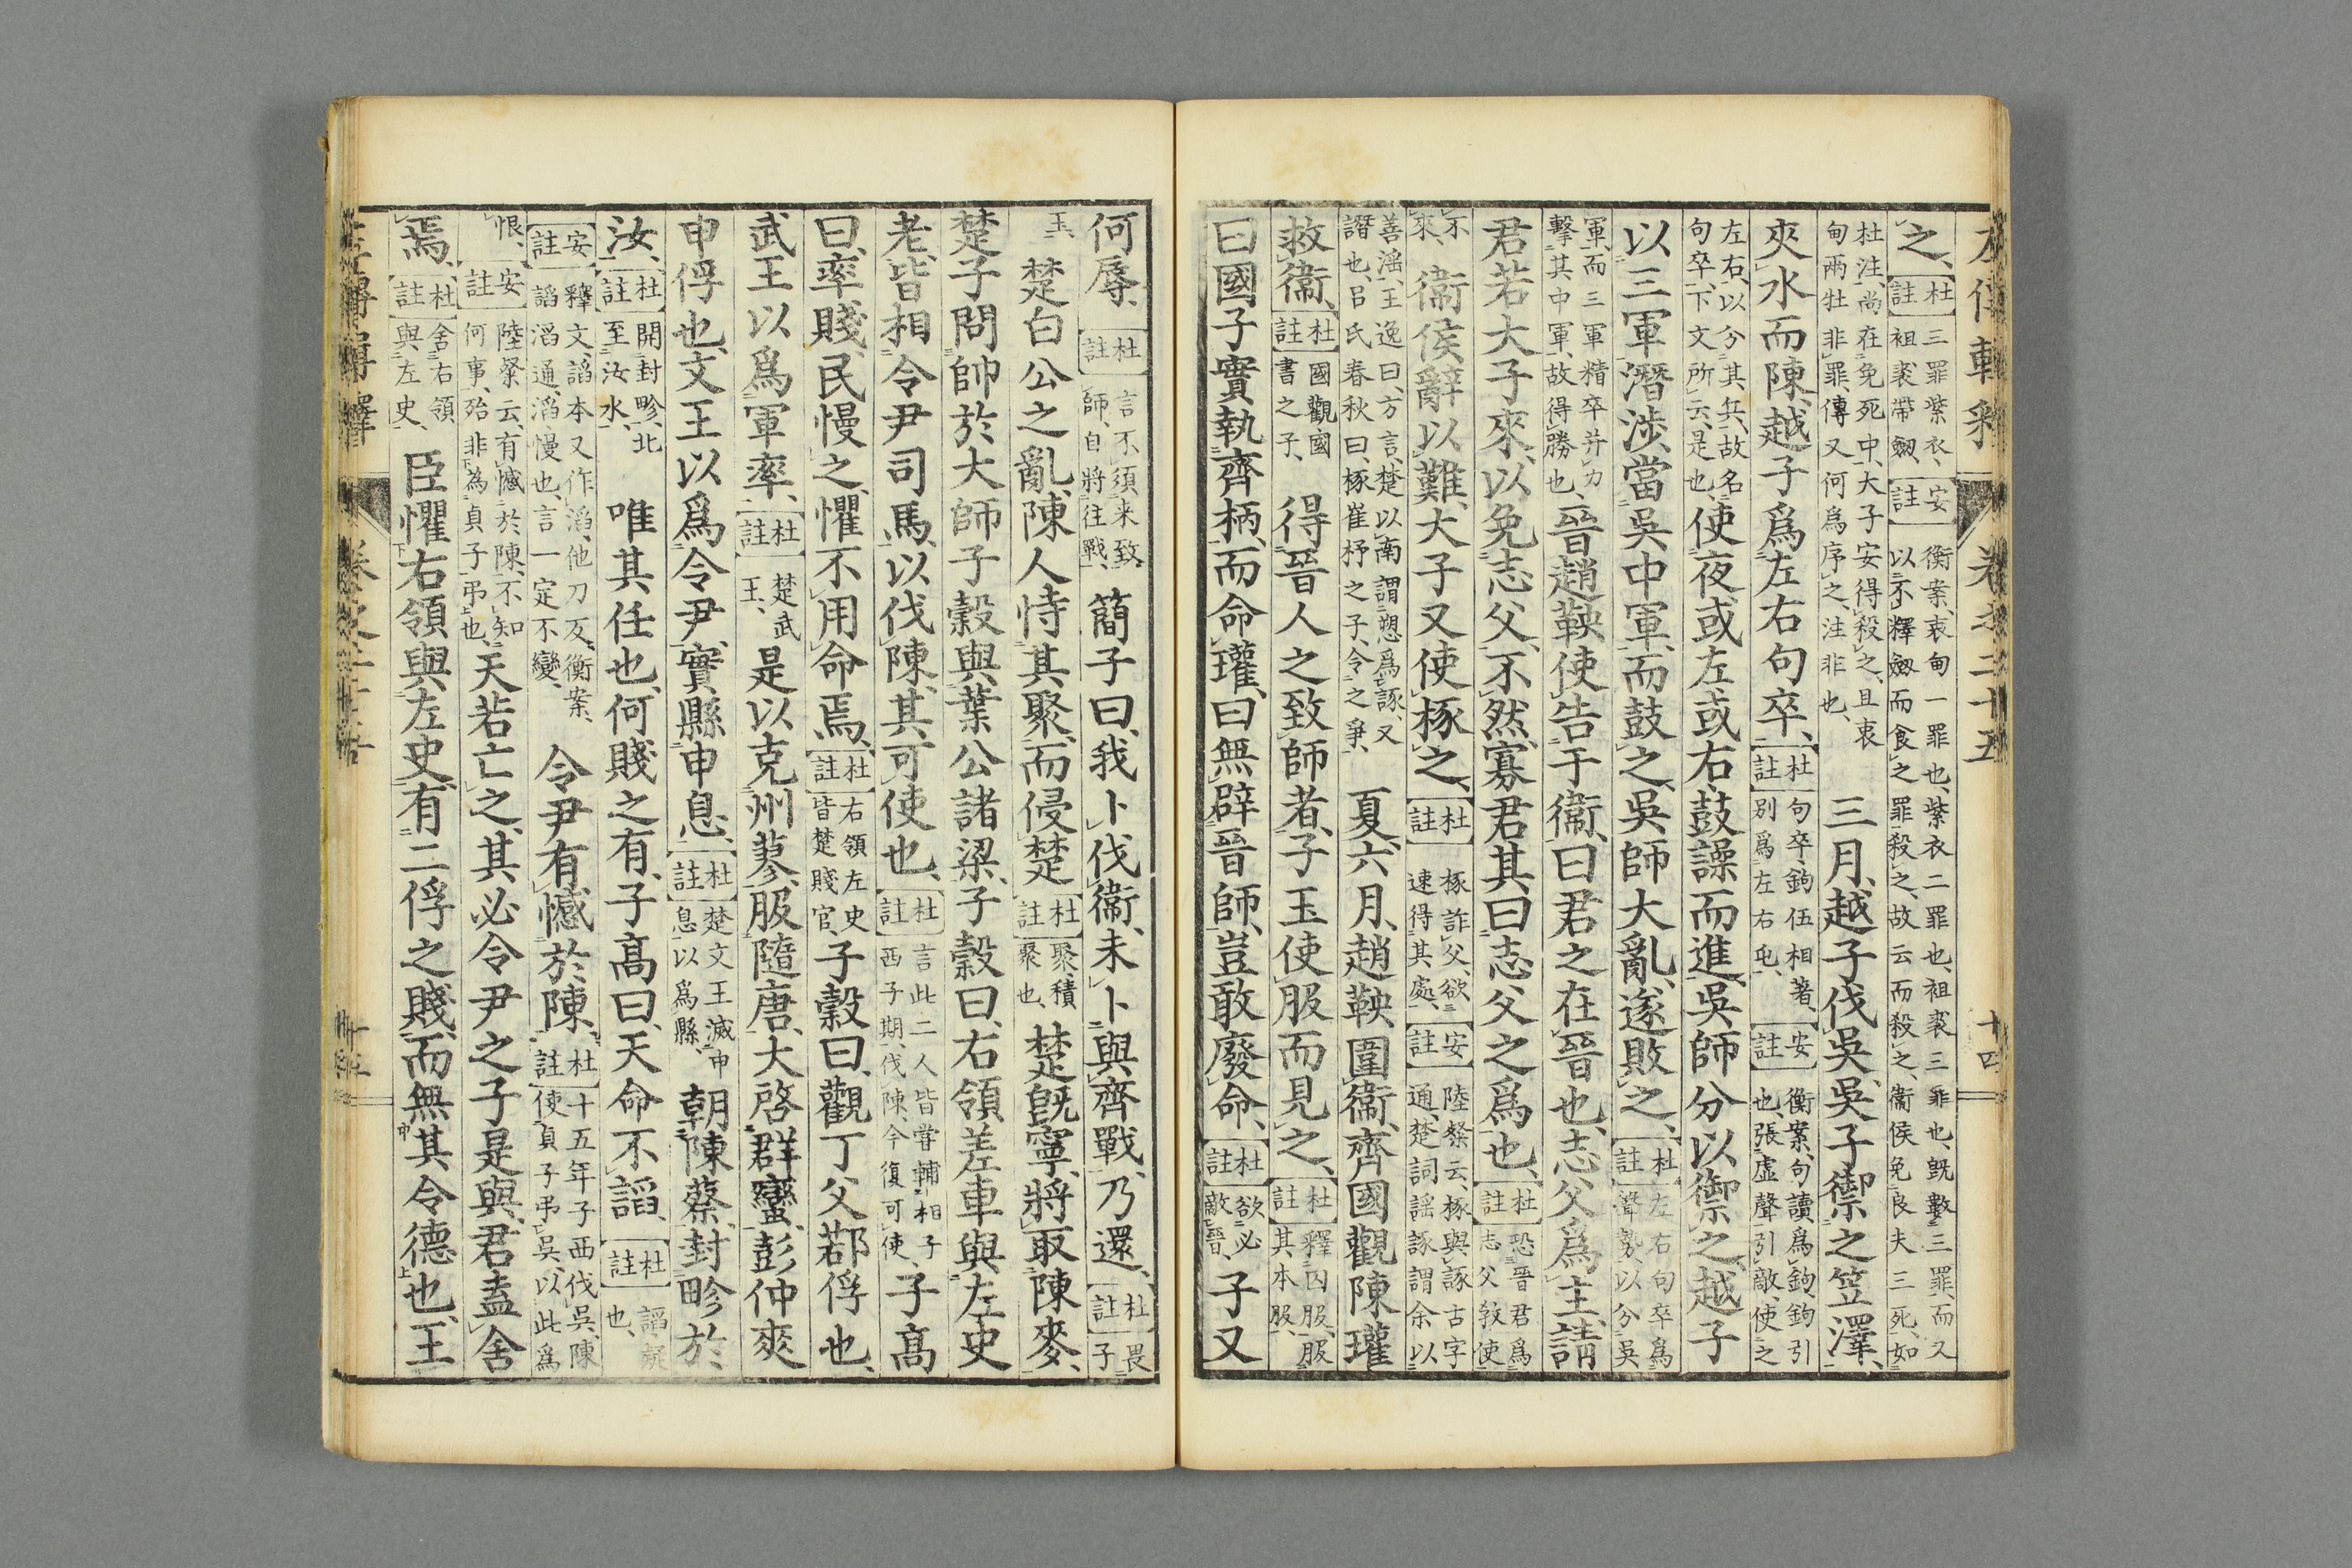 左傳輯釋 卷之二十五 十四
之、【杜註】三罪紫衣、袒裘帶劔、【安註】衡案、衷甸一罪也、紫衣二罪也、袒裘三罪也、旣數三罪、而又以不釋劔而食之罪殺之、故云而殺之、衞侯免良夫三死、如
杜注、尚在免死中、大子安得殺之、且衷甸兩牡非罪、傳又何爲序之、注非也、 三月、越子伐吳、吳子禦之笠澤、
夾水而陳、越子爲左右句卒、【杜註】句卒、鉤伍相著、別爲左右屯、【安註】衡案、句讀爲鉤、鉤引也、張虛聲引敵、使之
左右、以分其兵、故名句卒、下文所云、是也、使夜或左或右、鼓譟而進、吳師分以禦之、越子
以三軍潛涉、當吳中軍、而鼓之、吳師大亂、遂敗之、【杜註】左右句卒爲聲勢、以分吳
軍、而三軍精卒幷力擊其中軍、故得勝也、 晉趙鞅使告于衞、曰君之在晉也、志父爲主、請
君若大子來、以免志父、不然、寡君其曰、志父之爲也、【杜註】恐晉君爲志父敎使
不來、 衞侯辭以難、大子又使椓之、【杜註】椓、詐父、欲速得其處、【安註】陸粲云、椓與諑古字通、楚詞謡諑謂余以
善淫、王逸曰、方言、楚以南謂愬爲諑、又譖也、呂氏春秋曰、椓崔杼之子、令之爭、 夏、六月、趙鞅圍衞、齊國觀陳瓘
救衞、【杜註】國觀國書之子、 得晉人之致師者、子玉使服而見之、【杜註】釋囚服、服其本服、
曰國子實執齊柄、而命瓘、曰無辟晉師、豈敢廢命、【杜註】欲必敵晉、 子又
何辱、【杜註】言不須来致師、自將往戰、 簡子曰、我卜伐衞、未卜與齊戰、乃還、【杜註】畏子
玉、 楚白公之亂、陳人恃其聚、而侵楚、【杜註】聚、積聚也、 楚旣寧、將取陳麥、
楚子問帥於大師子穀與葉公諸梁、子穀曰、右領差車與左史
老、皆相令尹司馬、以伐陳、其可使也、【杜註】言此二人皆嘗輔相子西子期、伐陳、今復可使、 子高
曰、率賤、民慢之、懼不用命焉、【杜註】右領左史皆楚賤官、 子穀曰、觀丁父鄀俘也、
武王以爲軍率、【杜註】楚武王、 是以克州蓼、服隨唐、大啓群蠻、彭仲爽
申俘也、文王以爲令尹、實縣申息、【杜註】楚文王滅申息以爲縣、 朝陳蔡、封畛於
汝、【杜註】開封畛、北至汝水、 唯其任也、何賤之有、子高曰、天命不謟、【杜註】謟、疑也、
【安註】釋文、謟本又作滔、他刀反、衡案、謟滔通、滔、慢也、言一定不變、 令尹有憾於陳、【杜註】十五年子西伐吳、陳使貞子弔吳、以此爲
恨、【安註】陸粲云、有憾於陳、不知何事、殆非為貞子弔也、 天若亡之、其必令尹之子是與、君盍舍
焉、【杜註】舍右領與左史、 臣懼右領與左史、有二俘之賤、而無其令德也、王